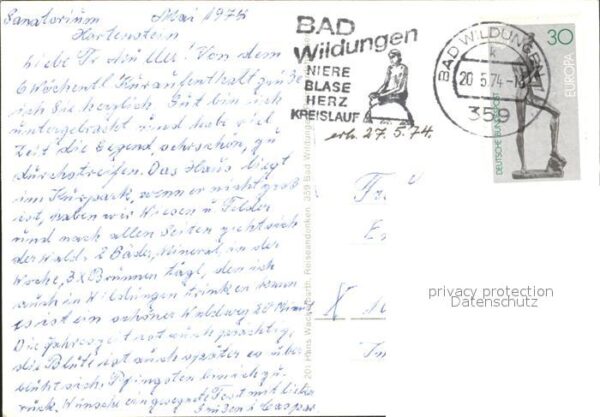 Sanatorium Mai 1974
Hartenstein
Liebe Fr. Müller! Von dem
6 Wöchentl. Kuraufenthalt grüße
ich Sie herzlich. Gut bin ich
untergebracht und habe viel
Zeit die Gegend, sehr schön, zu
durchstreifen. Das Haus liegt
im Kurpark, wenn er nicht groß
ist, haben wir Wiesen u Felder
und nach allen Seiten zieht sich
der Wald. 2 Bäder, Mineral, in der
Woche, 3x Brunnen tägl, den ich
auch in Wildungen trinken kann
es ist ein schöner Waldweg 20 Minut
Die Jahreszeit ist auch prächtig,
die Blüte ist auch später es über
blüht sich. Pfingsten bin ich zu
rück. Wünsche ein gesegnetes Fest mit lieben
Grüßen Caspar
BAD
Wildungen
NIERE
BLASE
HERZ
KREISLAUF
BAD WILDUNGEN
20.5.74
359
erh. 27.5.74.
30
EUROPA
DEUTSCHE BUNDESPOST
privacy protection
Datenschutz